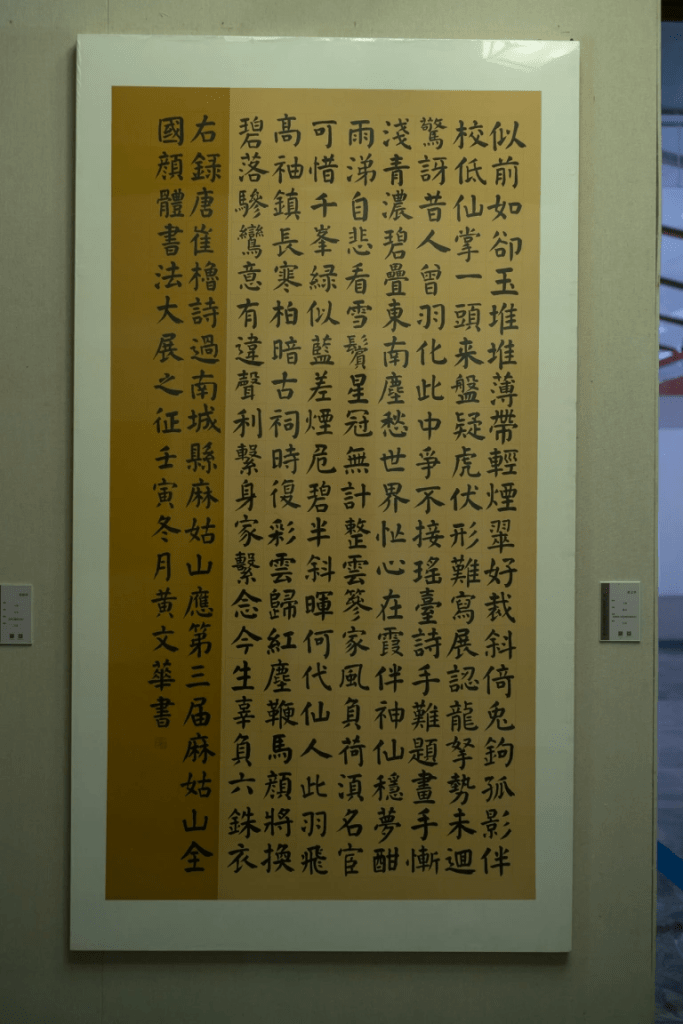 似前如卻玉堆堆薄帶輕煙翠好裁斜倚兔鉤孤影伴
校低仙掌一頭来盤疑虎伏形難寫展認龍拏勢未迴
驚訝昔人曾羽化此中爭不接瑤臺詩手難題畫手慚
淺青濃碧疊東南塵愁世界忙心在霞伴神仙穩夢酣
雨涕自悲看雪鬢星冠無計整雲篸家風負荷湏名宦
可惜千峯緑似藍差煙危碧半斜暉何代仙人此羽飛
高袖鎮長寒柏暗古祠時復彩雲歸紅塵鞭馬顔將換
碧落驂鸞意有違聲利繫身家繫念今生辜負六銖衣
右録唐崔櫓詩過南城縣麻姑山應第三届麻姑山全
國顔體書法大展之征壬寅冬月黄文華書